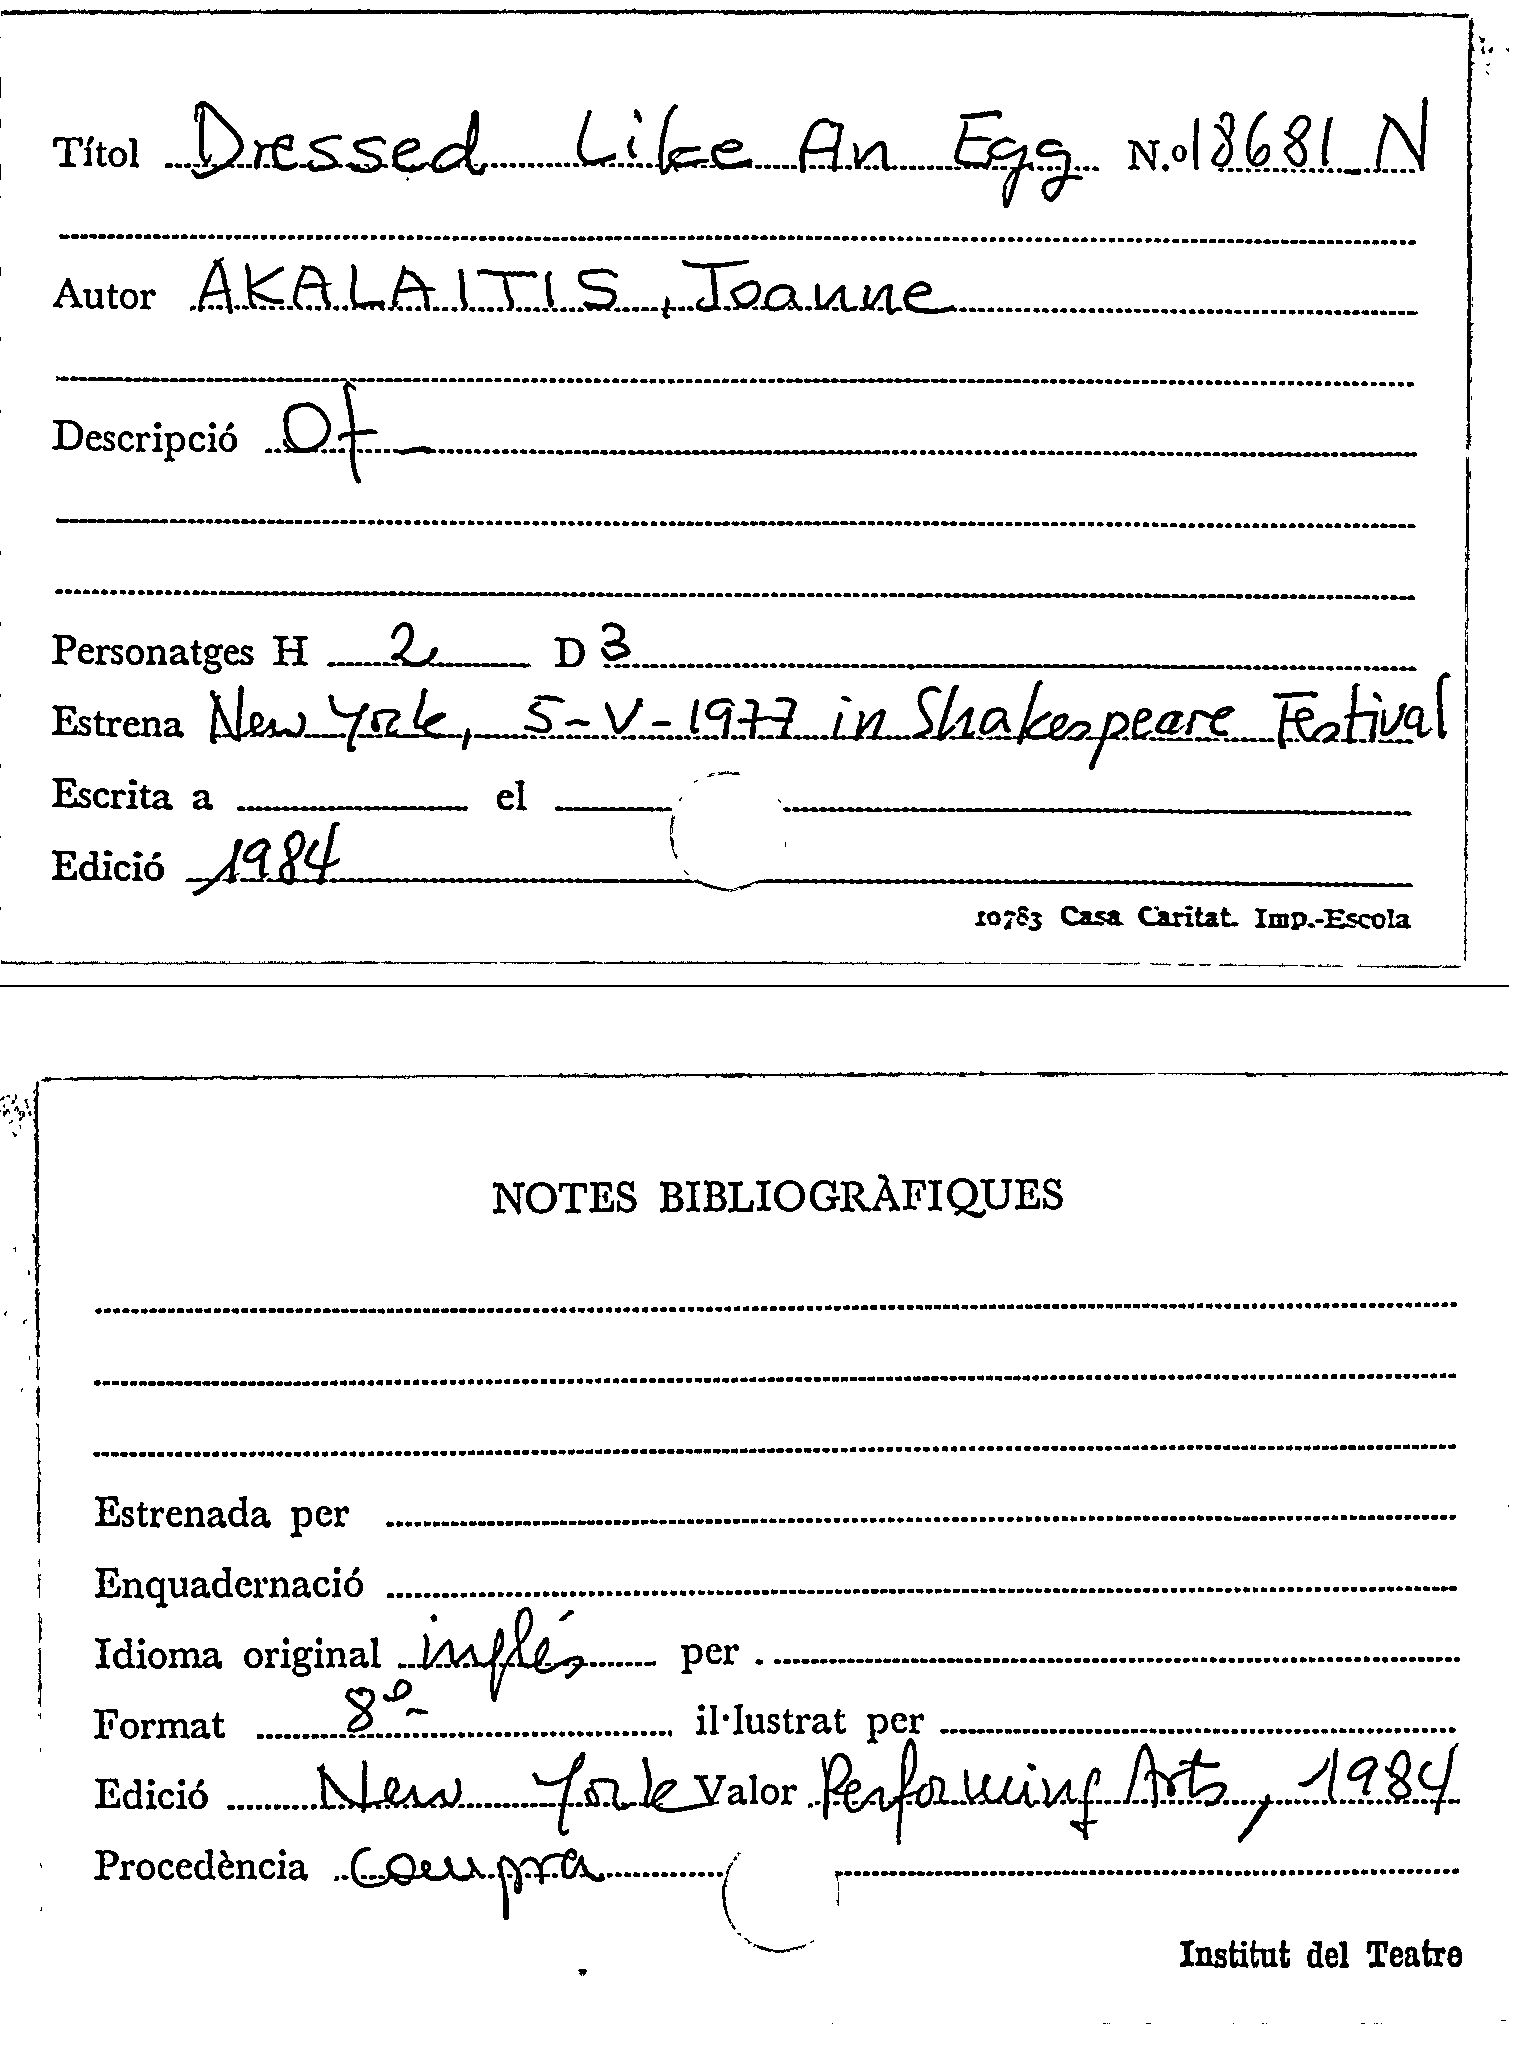 Títol Dressed Like An Egg N.º 18681 N
Autor AKALAITIS, Joanne
Descripció Of
Personatges H 2 D 3
Estrena New York, 5-V-1977 in Shakespeare Festival
Escrita a el
Edició 1984
10783 Casa Caritat. Imp.-Escola
NOTES BIBLIOGRÀFIQUES
Estrenada per
Enquadernació
Idioma original inglés per
Format 8º- il·lustrat per
Edició New York Valor Performing Arts, 1984
Procedència Compra
Institut del Teatre